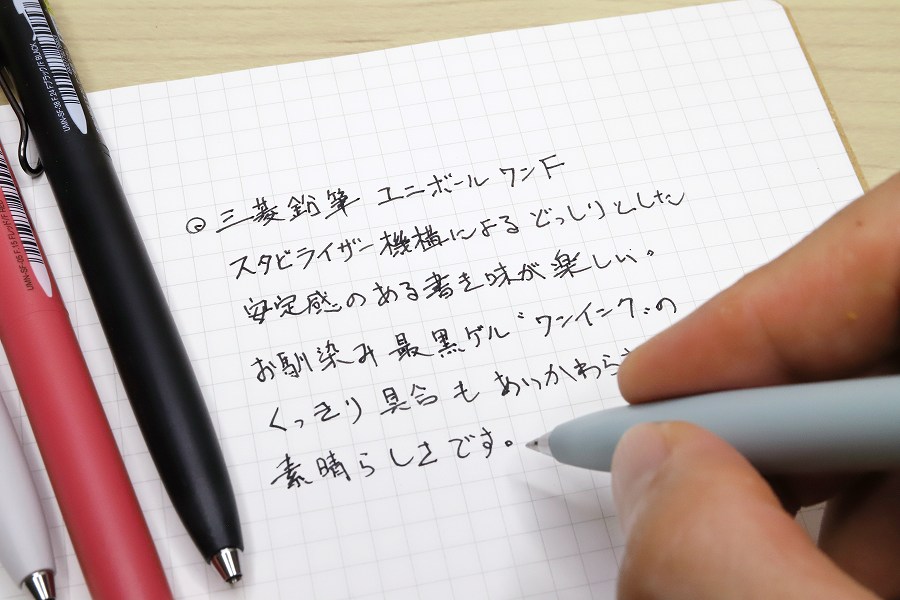 ◎ 三菱鉛筆 ユニボール ワンF
スタビライザー機構によるどっしりとした
安定感のある書き味が楽しい。
お馴染み最黒ゲル“ワンインク”の
くっきり具合もあいかわらず
素晴らしさです。
UMN-SF-38 F.24 Fブラック/F.BLACK
UMN-SF-38 F.15